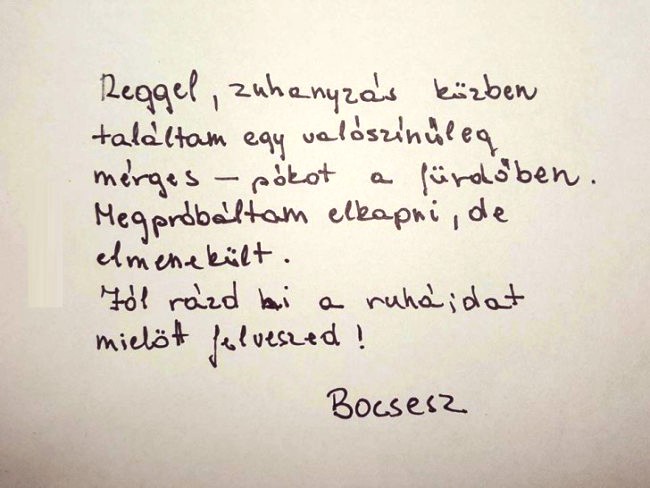 Reggel, zuhanyzás közben
találtam egy valószínűleg
mérges – pókot a fürdőben.
Megpróbáltam elkapni, de
elmenekült.
Jól rázd ki a ruháidat
mielőtt felveszed!
Bocsesz